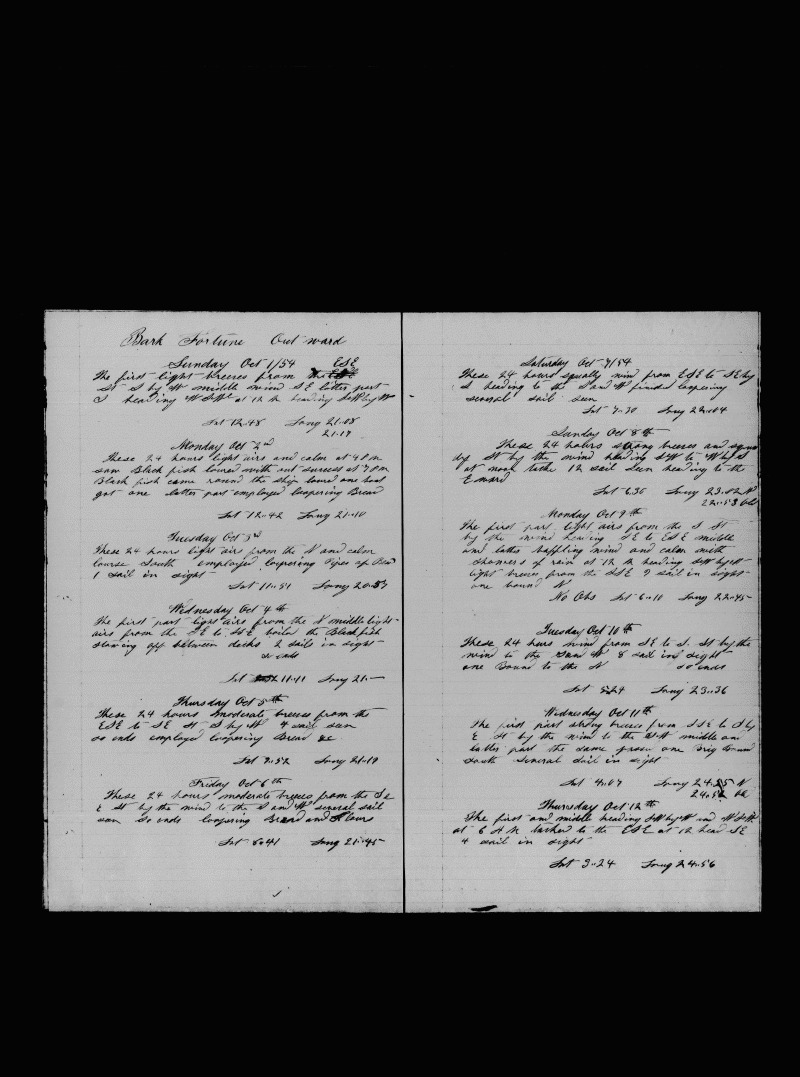 Bark Fortune Out ward
Sunday Oct 1/54 ESE
The first light breeses from the
St S by W middle wind SE latter part
S heading WSW at 12 M heading SW by W
Lat 12..48 Long 21..08
21..17
Monday Oct 2nd
These 24 hours light airs and calm at 4 P M
saw Black fish lowred with out sucsess at 7 P M
Black fish came round the ship lowred one boat
got one latter part employed Coopering Bread
Lat 12..42 Long 21..10
Tuesday Oct 3d
These 24 hours light airs from the N and calm
course South employed Coopering Pipes of Bread
1 sail in sight
Lat 11..51 Long 20..57
Wednesday Oct 4th
The first part light airs from the N middle light
airs from the SE to SSE boiled the Blackfish
stowing off between decks 2 sails in sight
so ends
Lat 11..11 Long 21..—
Thursday Oct 5th
These 24 hours moderate breeses from the
ESE to SE St S by W 4 sail seen
so ends employed Coopering Bread &c
Lat 8..52 Long 21..19
Friday Oct 6th
These 24 hours moderate breeses from the S
E St by the wind to the S and W several sail
seen So ends Coopering Bread and Flour
Lat 8..41 Long 21..45
Saturday Oct 7/54
These 24 hours squally wind from ESE to SE by
S heading to the S and W finished Coopering
several sail seen
Lat 7..30 Long 22..04
Sunday Oct 8th
These 24 hours strong breeses and
St by the wind heading SW to W by S
at noon tacked 12 sail seen heading to the
E ward
Lat 6.30 Long 23..02
22..53 Obs
Monday Oct 9th
The first part light airs from the S St
by the wind heading SE to ESE middle
and latter baffling wind and calm with
showers of rain at 12 M heading SW by W
light breeses from the SSE 9 sail in sight
one bound N
No Obs Lat 6..10 Long 22..45
Tuesday Oct 10th
These 24 hours wind from SE to S. St by the
wind to the S and W 8 sail in sight
one Bound to the N so ends
Lat 5..24 Long 23..36
Wednesday Oct 11th
The first part strong breeses from SSE to S by
E St by the wind to the WSW middle and
latter part the same one Brig bound
south several sail in sight
Lat 4..07 Long 24..25
24..
Thursday Oct 12th
The first and middle heading SW by W and WSW
at 6 A M tacked to the ESE at 12 head SE
4 sail in sight
Lat 3..24 Long 24..56